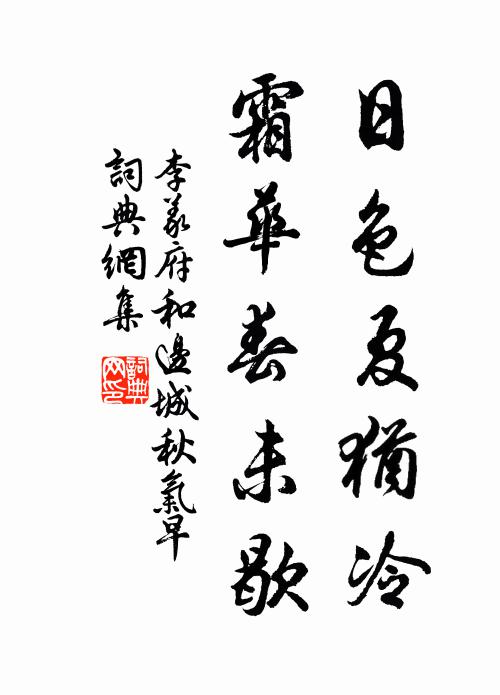 日色夏猶冷
霜華春未歇
李義府和邊城秋氣早
詞典網集
詞典網印